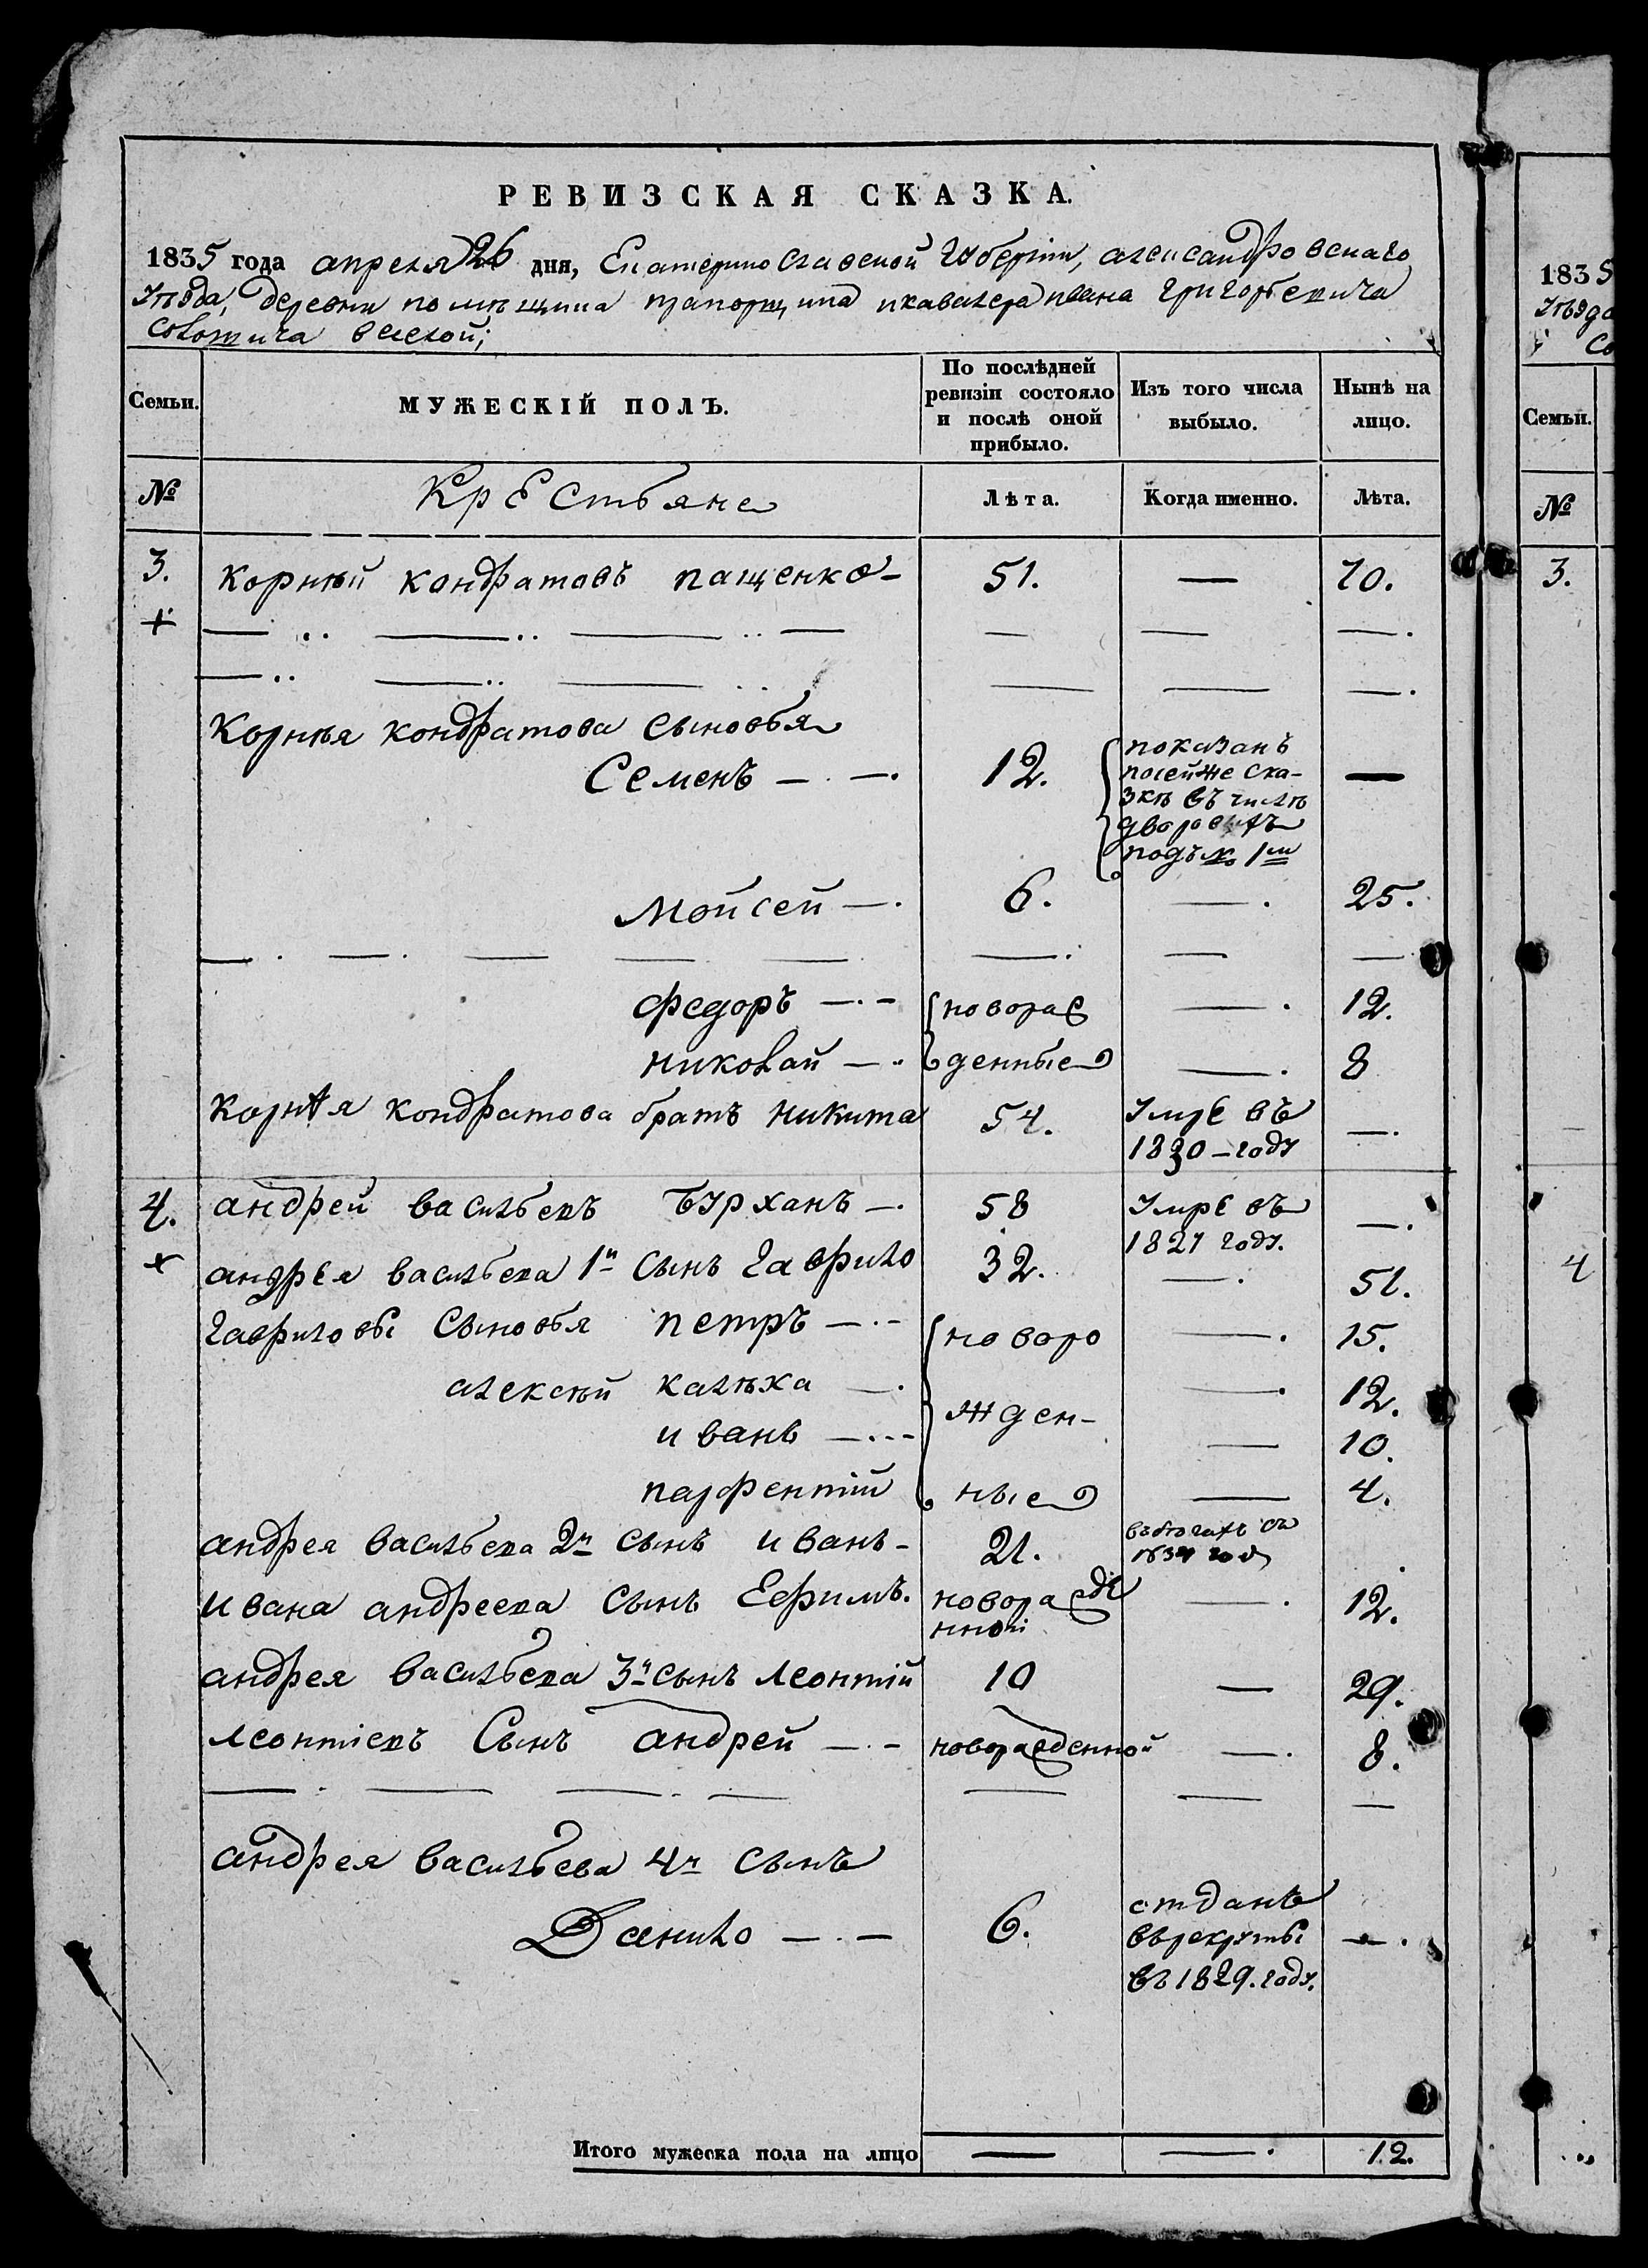 РЕВИЗСКАЯ СКАЗКА.
1835 года апреля 26 дня, Екатеринославской Губерніи, александровскаго
уѣзда, деревни помѣщика прапорщика икавалера ивана григорьевича
веселой;
Семьи. МУЖЕСКІЙ ПОЛЪ. По послѣдней ревизіи состояло и послѣ оной прибыло. Изъ того числа выбыло. Нынѣ на лицо.
№ Крестьяне Лѣта. Когда именно. Лѣта.
3. корнѣй кондратовъ пащенко 51. — 70.
Корнѣя кондратова сыновья
Семенъ — . — . 12. показанъ —
посейже ска-
зкѣ въ числѣ
дворовыхъ
подъ № 1м
Мойсей — . 6. — . 25.
федоръ — . — новорож — . 12.
николай — .. денные — . 8
корнѣя кондратова братъ никита 54. умре въ — .
1830 — году
4. андрей васильевъ Бурханъ — . 58 умре въ — .
1827 году.
андрея васильева 1й сынъ гаврило 32. — . 51.
гавриловы сыновья петръ — . — новоро — . 15.
алексѣй калѣка — . — . 12.
иванъ — . . - жден- — 10.
парфентій ные — 4.
андрея васильева 2й сынъ иванъ - 21. въбегахъ съ
1834 год
ивана андреева сынъ Ефимъ. новорожде — . 12.
нной
андрея васильева 3й сынъ леонтій 10 — 29.
леонтіевъ сынъ андрей — . — новорожденной — . 8.
андрея васильева 4й сынъ
Данило — . — 6. отданъ — .
въ рекруты
въ 1829. году.
Итого мужеска пола на лицо — — . 12.
1835
уѣзда
Со
Семьи.
№
3.
4